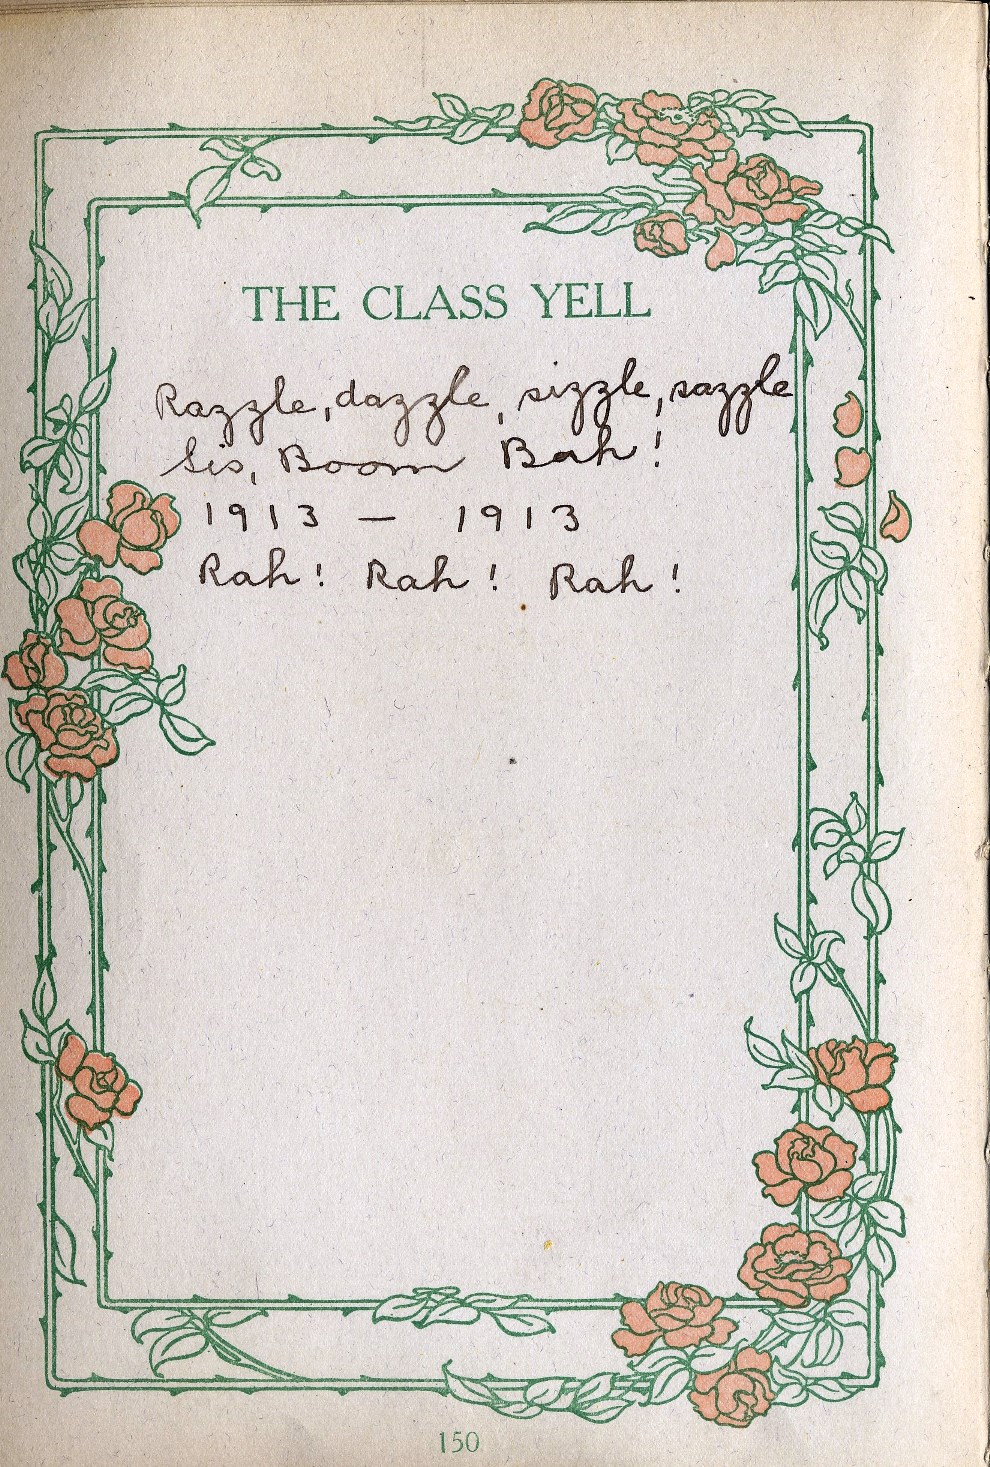 THE CLASS YELL
Razzle, dazzle, sizzle, sazzle
Sis, Boom Bah!
1913 — 1913
Rah! Rah! Rah!
150